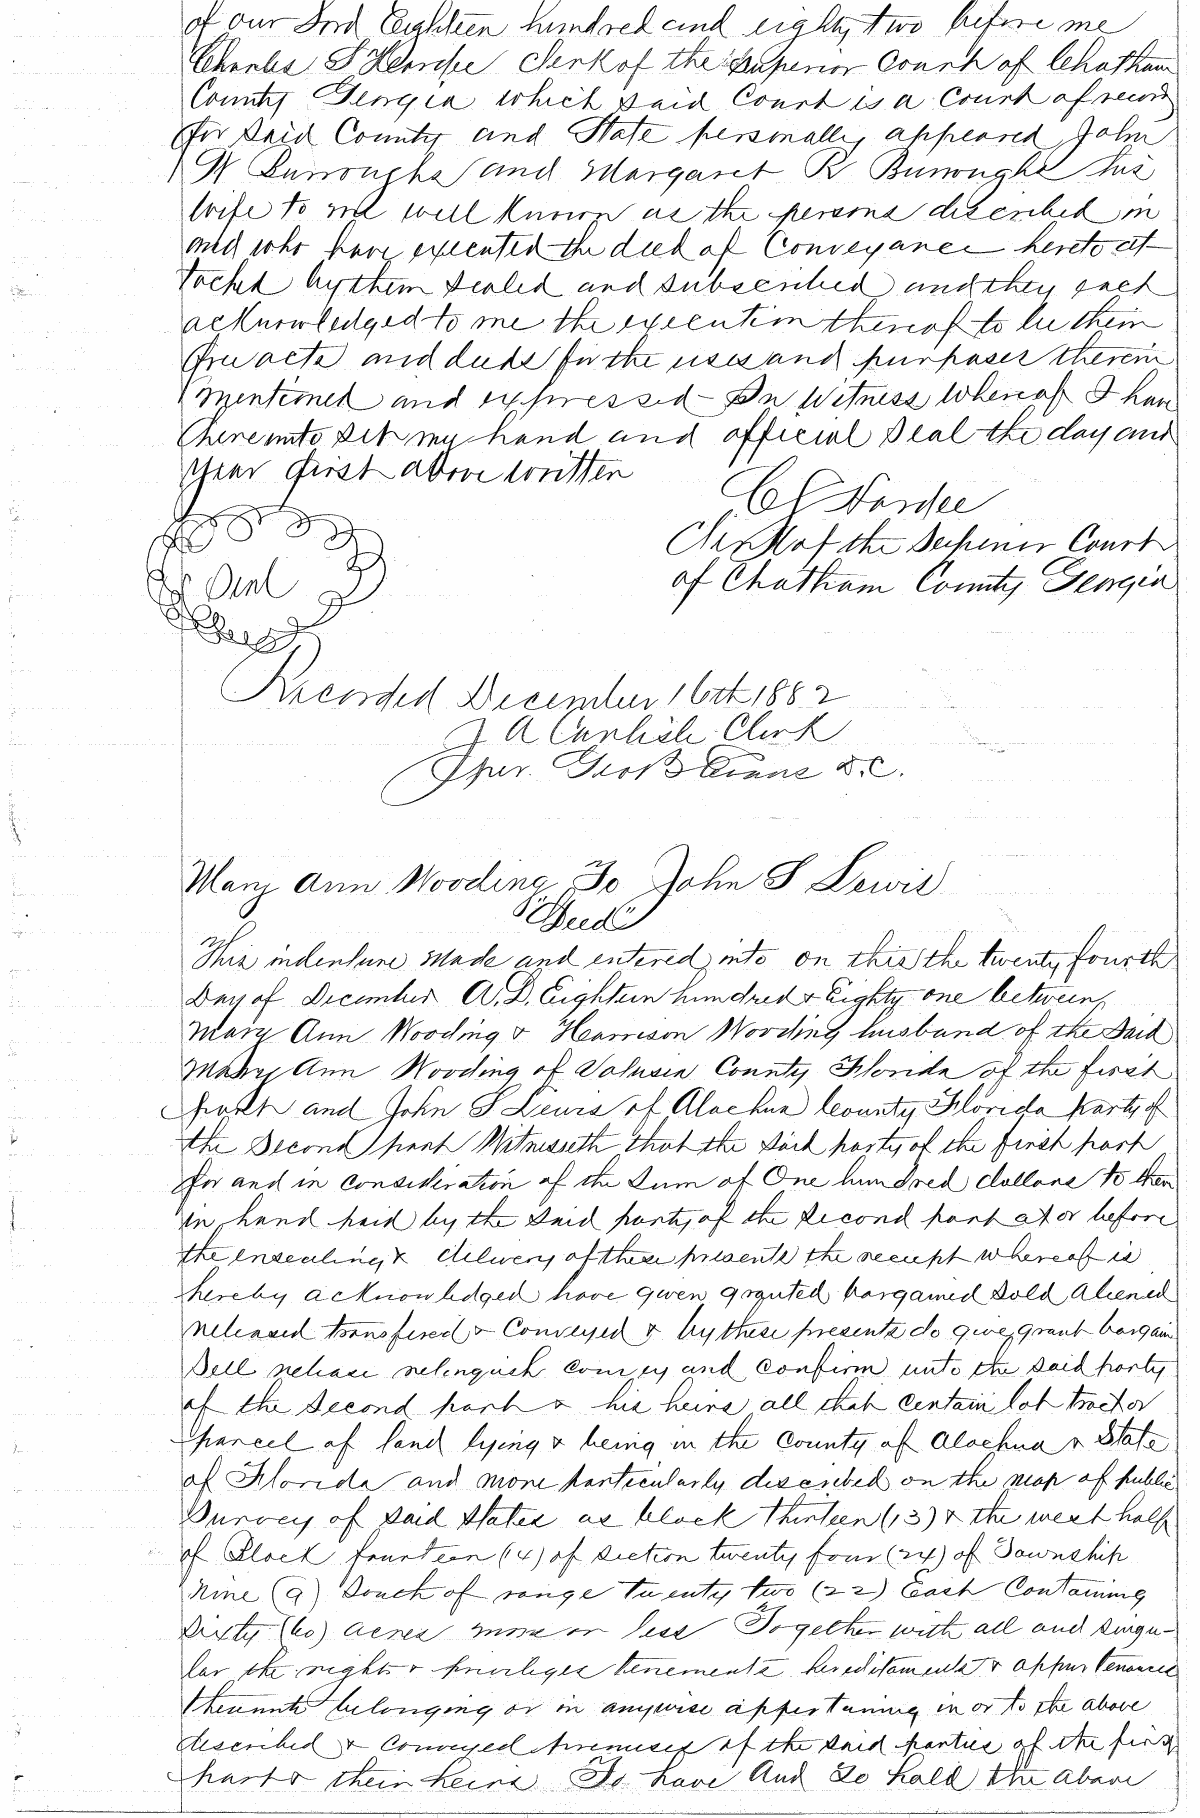 of our Lord Eighteen hundred and eighty two before me
Charles S Hardee Clerk of the Superior Court of Chatham
County Georgia which said Court is a Court of record
for said County and State personally appeared John
W Burroughs and Margaret R Burroughs his
wife to me well known as the persons described in
and who have executed the deed of Conveyance hereto at
tached by them sealed and subscribed and they each
acknowledged to me the execution thereof to be their
free acts and deeds for the uses and purposes therein
mentioned and expressed - In Witness Whereof I have
hereunto set my hand and official Seal the day and
year first above written
C S Hardee
Clerk of the Superior Court
of Chatham County Georgia
Seal
Recorded December 16th 1882
J A Carlisle Clerk
per. Geo B Evans D.C.
Mary Ann Wooding To John S Lewis
"Deed"
This indenture made and entered into on this the twenty fourth
Day of December A.D. Eighteen hundred & Eighty one between
Mary Ann Wooding & Harrison Wooding husband of the said
Mary Ann Wooding of Volusia County Florida of the first
part and John S Lewis of Alachua County Florida party of
the Second part Witnesseth that the said party of the first part
for and in consideration of the Sum of One hundred dollars to them
in hand paid by the said party of the second part at or before
the ensealing & delivery of these presents the receipt whereof is
hereby acknowledged have given granted bargained sold aliened
released transfered & Conveyed & by these presents do give grant bargain
Sell release relinquish convey and confirm unto the said party
of the second part & his heirs all that certain lot tract or
parcel of land lying & being in the County of Alachua & State
of Florida and more particularly described on the map of public
Survey of said States as block thirteen (13) & the west half
of Block fourteen (14) of section twenty four (24) of Township
Nine (9) South of range twenty two (22) East Containing
Sixty (60) acres more or less Together with all and singu-
lar the rights & privileges tenements hereditaments & appurtenances
thereunto belonging or in anywise appertaining in or to the above
described & Conveyed premises of the said parties of the first
part & their heirs To have And To hold the above